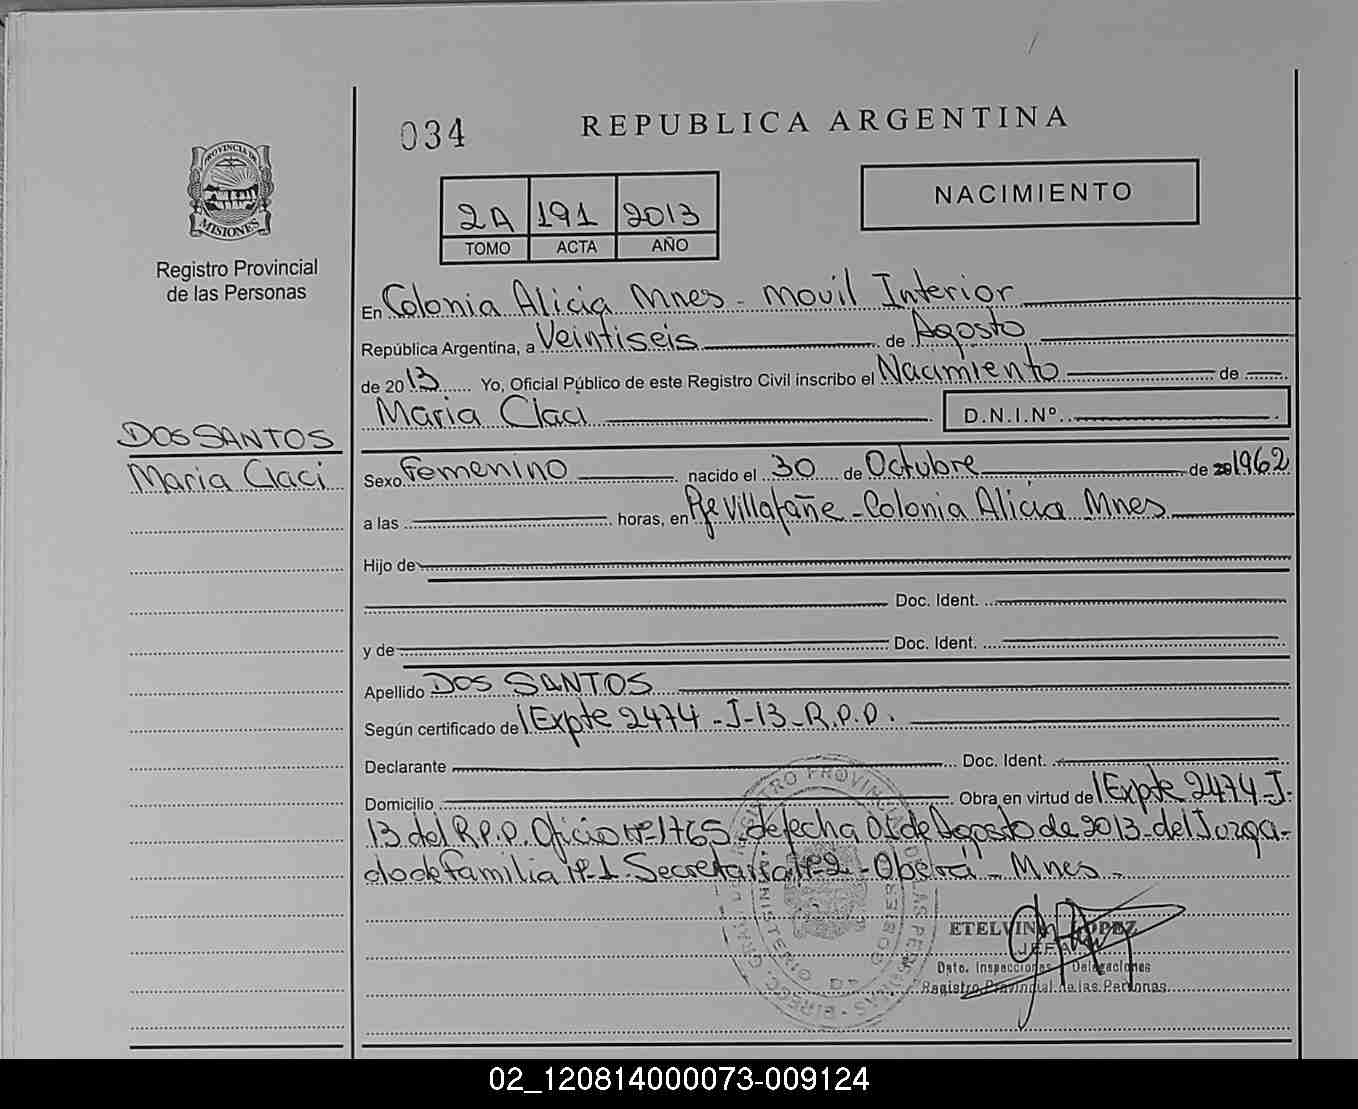 034
REPUBLICA ARGENTINA
PROVINCIA DE
MISIONES
Registro Provincial
de las Personas
2A 191 2013
TOMO ACTA AÑO
NACIMIENTO
En Colonia Alicia Mnes - Movil Interior
República Argentina, a Veintiseis de Agosto
de 2013 Yo, Oficial Público de este Registro Civil inscribo el Nacimiento de
Maria Claci D.N.I.Nº
DOS SANTOS
Maria Claci
Sexo Femenino nacido el 30 de Octubre de 20 1962
a las horas, en Pje Villafañe - Colonia Alicia Mnes
Hijo de
Doc. Ident.
y de Doc. Ident.
Apellido DOS SANTOS
Según certificado de Expte 2474-J-13-R.P.P.
Declarante Doc. Ident.
Domicilio Obra en virtud de Expte 2474-J-
13 del R.P.P. Oficio Nº 1765 de fecha 01 de Agosto de 2013 - del Juzga-
do de Familia Nº 1 Secretaria Nº 2 - Oberá - Mnes -
REGISTRO PROVINCIAL DE LAS PERSONAS
MINISTERIO DE GOBIERNO
ETELVINA LOPEZ
JEFA
Dpto. Inspecciones Delegaciones
Registro Provincial de las Personas
02_120814000073-009124